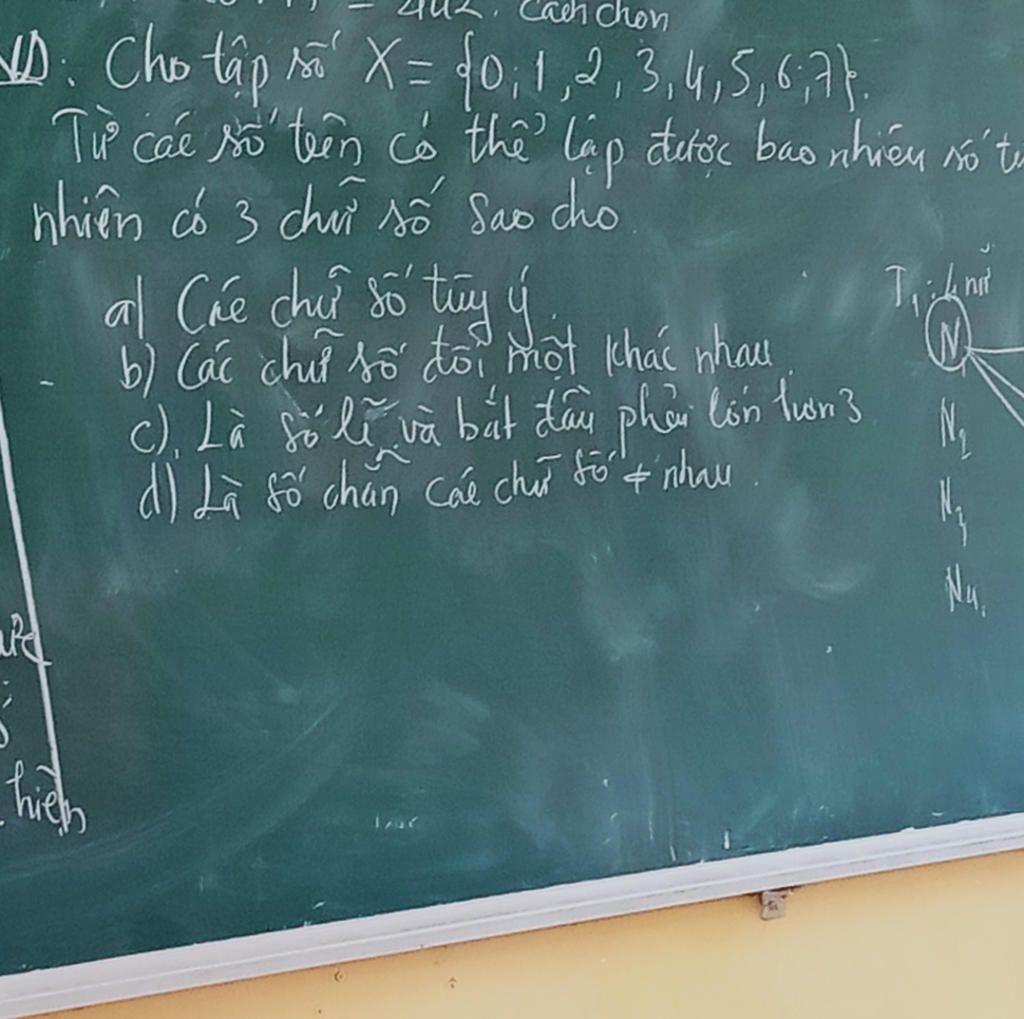 = 2u2. Cách chọn
VD: Cho tập số X = {0; 1, 2, 3, 4, 5, 6; 7}.
Từ các số trên có thể lập được bao nhiêu số tự
nhiên có 3 chữ số sao cho
a) Các chữ số tùy ý.
b) Các chữ số đôi một khác nhau.
c). Là số lẽ và bắt đầu phải lớn hơn 3
d) Là số chẵn các chữ số ≠ nhau.
T₁: 4 nữ
N
N₂
N₃
N₄.
hiện